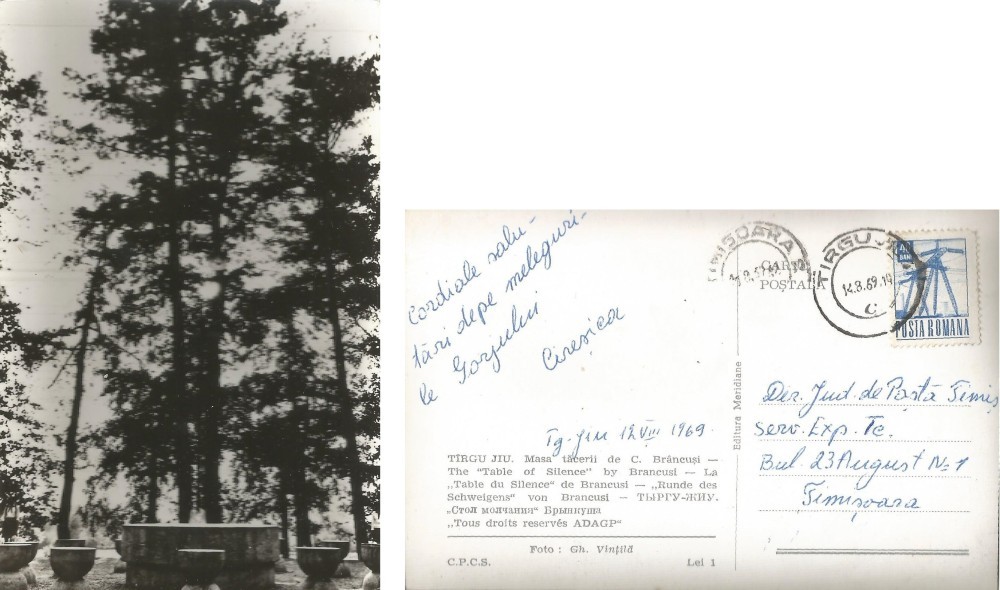 Cordiale salu-
tări depe meleguri-
le Gorjului
Cireșica
Tg-Jiu 12 VIII 1969.
TÎRGU JIU. Masa tăcerii de C. Brâncuși —
The "Table of Silence" by Brancusi — La
„Table du Silence" de Brancusi — „Runde des
Schweigens" von Brancusi — ТЫРГУ-ЖИУ.
„Стол молчания" Брынкуша
„Tous droits reservés ADAGP"
Foto : Gh. Vințilă
C.P.C.S. Lei 1
Editura Meridiane
TIMIȘOARA
CARTE
POȘTALĂ
TÎRGU JIU
14.8.69.19
C
40
BANI
POSTA ROMANA
Dir. Jud. de Poștă Timiș
serv. Exp. Tc.
Bul. 23 August No 1
Timișoara